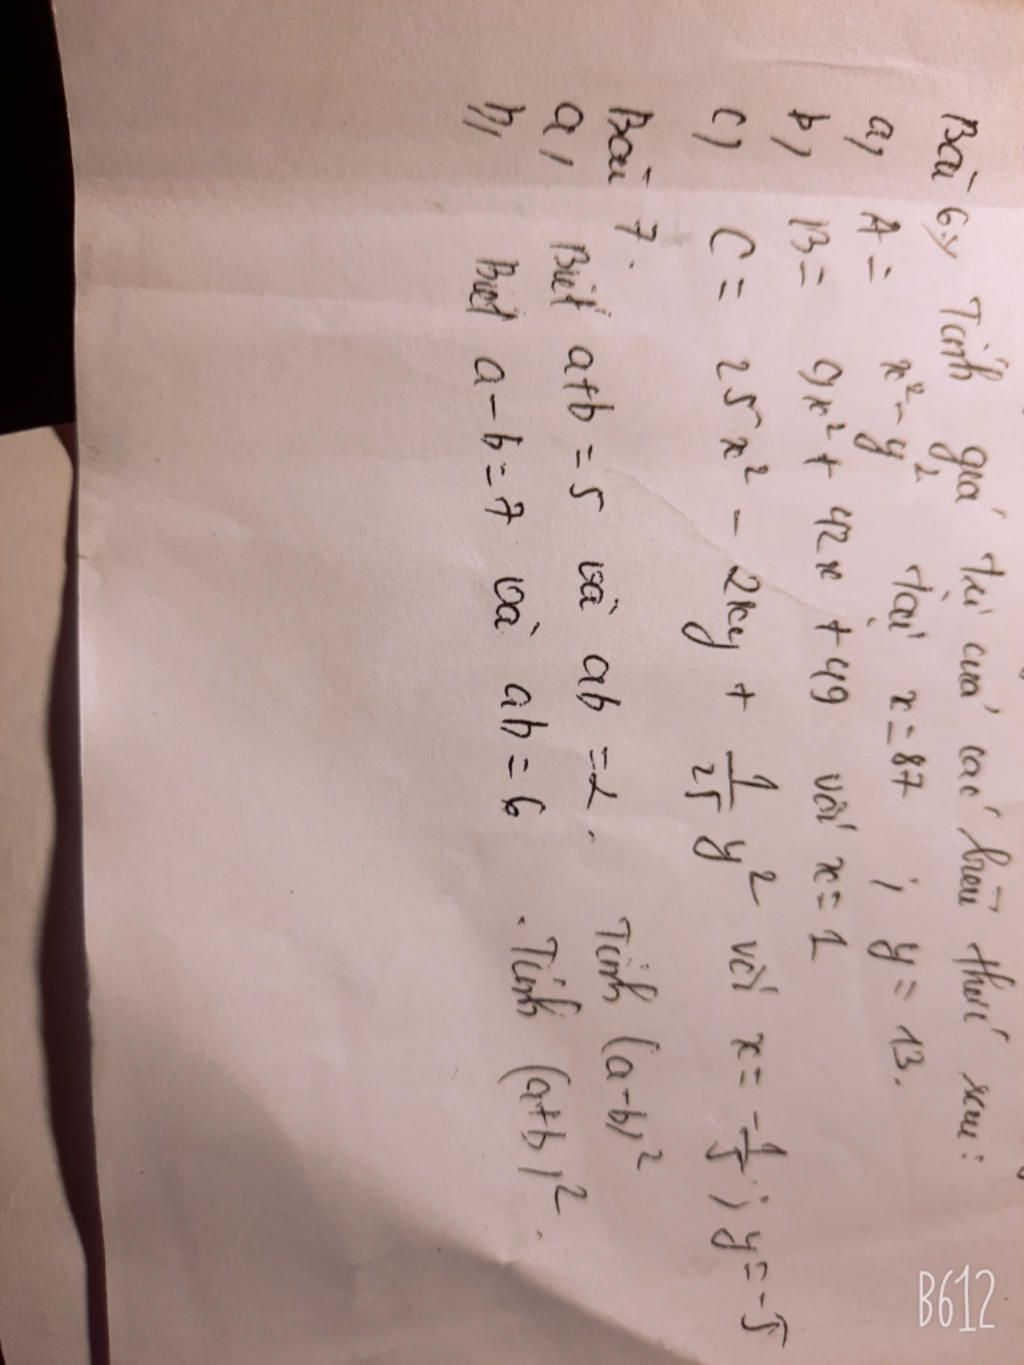 Bài 6, Tính giá trị của các biểu thức sau:
a, A = x² - y² tại x = 87 ; y = 13.
b, B = 9x² + 42x + 49 với x = 1
c, C = 25x² - 2xy + 1/25 y² với x = -1/5 ; y = -5
Bài 7.
a, Biết a+b = 5 và ab = 2. Tính (a-b)²
b, Biết a-b = 7 và ab = 6. Tính (a+b)².
B612